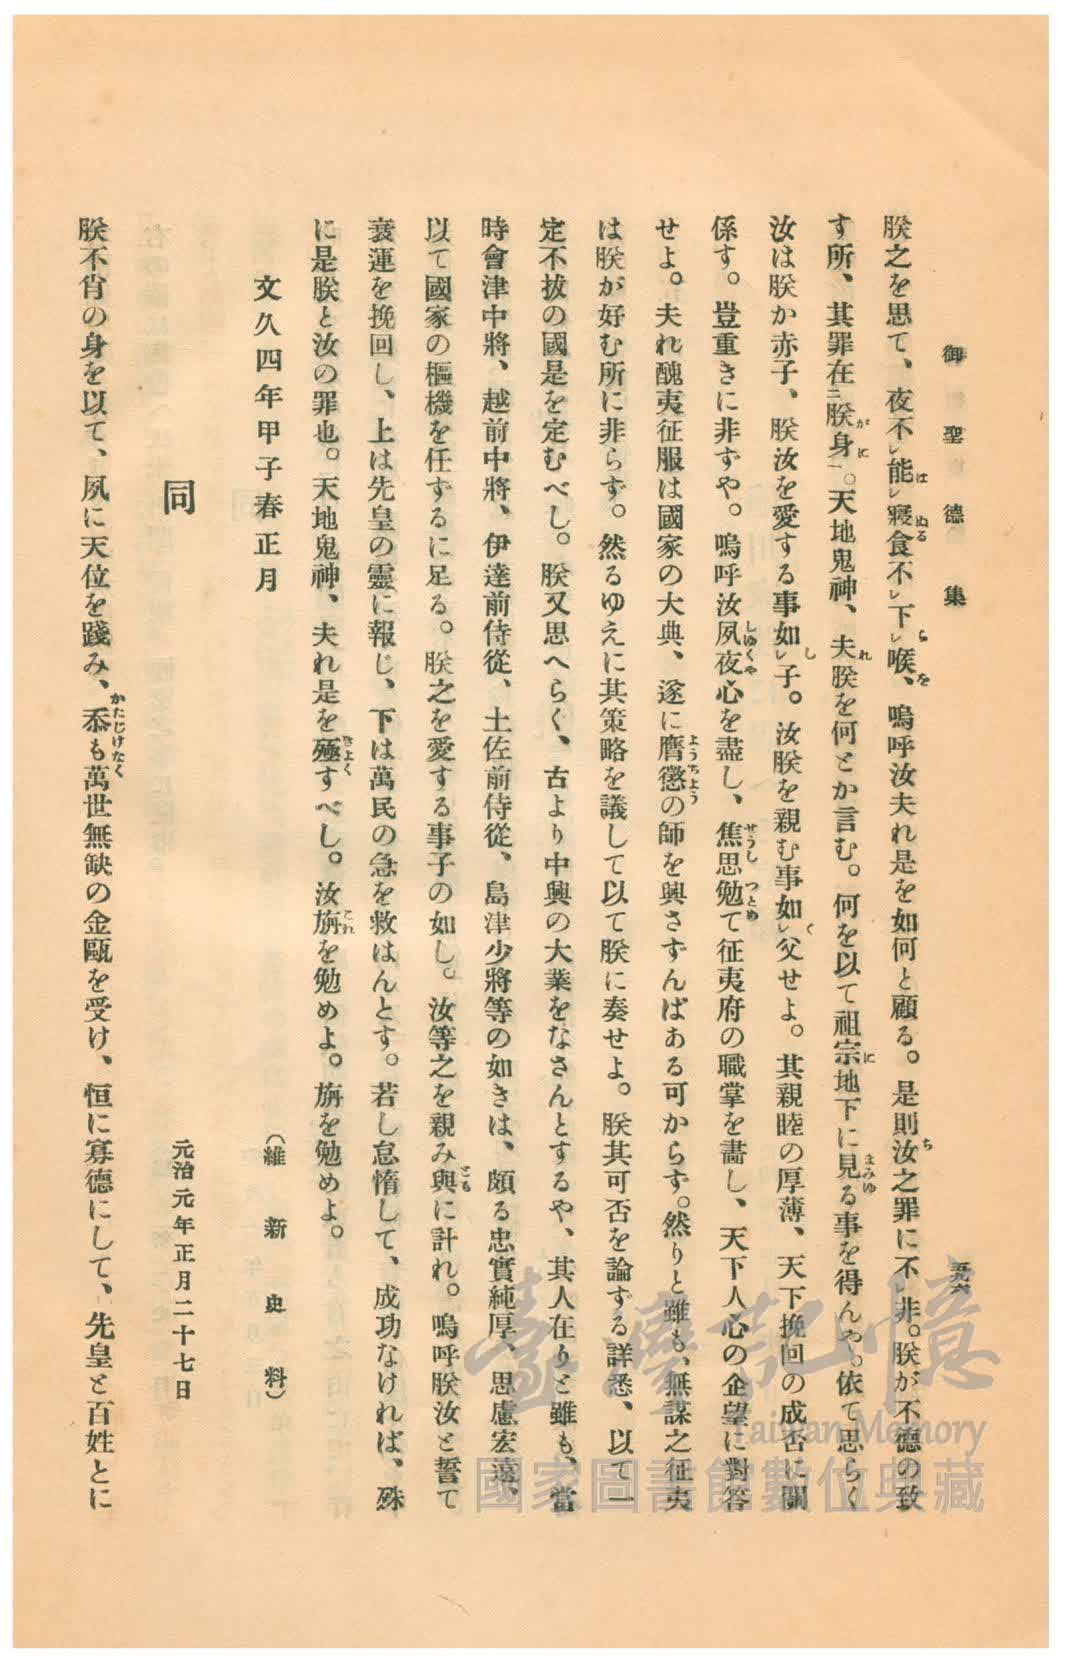 御聖德集
五六
朕之を思て、夜不レ能レ寢食不レ下レ喉、嗚呼汝夫れ是を如何と顧る。是則汝之罪に不レ非。朕が不德の致
す所、其罪在二朕身一。天地鬼神、夫朕を何とか言む。何を以て祖宗地下に見る事を得んや。依て思らく
汝は朕か赤子、朕汝を愛する事如レ子。汝朕を親む事如レ父せよ。其親睦の厚薄、天下挽回の成否に關
係す。豈重きに非ずや。嗚呼汝夙夜心を盡し、焦思勉て征夷府の職掌を盡し、天下人心の企望に對答
せよ。夫れ醜夷征服は國家の大典、遂に膺懲の師を興さずんばある可からず。然りと雖も、無謀之征夷
は朕が好む所に非らず。然るゆえに其策略を議して以て朕に奏せよ。朕其可否を論ずる詳悉、以て一
定不拔の國是を定むべし。朕又思へらく、古より中興の大業をなさんとするや、其人在りと雖も、當
時會津中將、越前中將、伊達前侍從、土佐前侍從、島津少將等の如きは、頗る忠實純厚、思慮宏遠、
以て國家の樞機を任ずるに足る。朕之を愛する事子の如し。汝等之を親み與に計れ。嗚呼朕汝と誓て
衰運を挽回し、上は先皇の靈に報じ、下は萬民の急を救はんとす。若し怠惰して、成功なければ、殊
に是朕と汝の罪也。天地鬼神、夫れ是を殛すべし。汝旃を勉めよ。旃を勉めよ。
文久四年甲子春正月
（維新史料）
同
元治元年正月二十七日
朕不肖の身を以て、夙に天位を踐み、忝も萬世無缺の金甌を受け、恒に寡德にして、先皇と百姓とに
臺灣記憶
Taiwan Memory
國家圖書館數位典藏